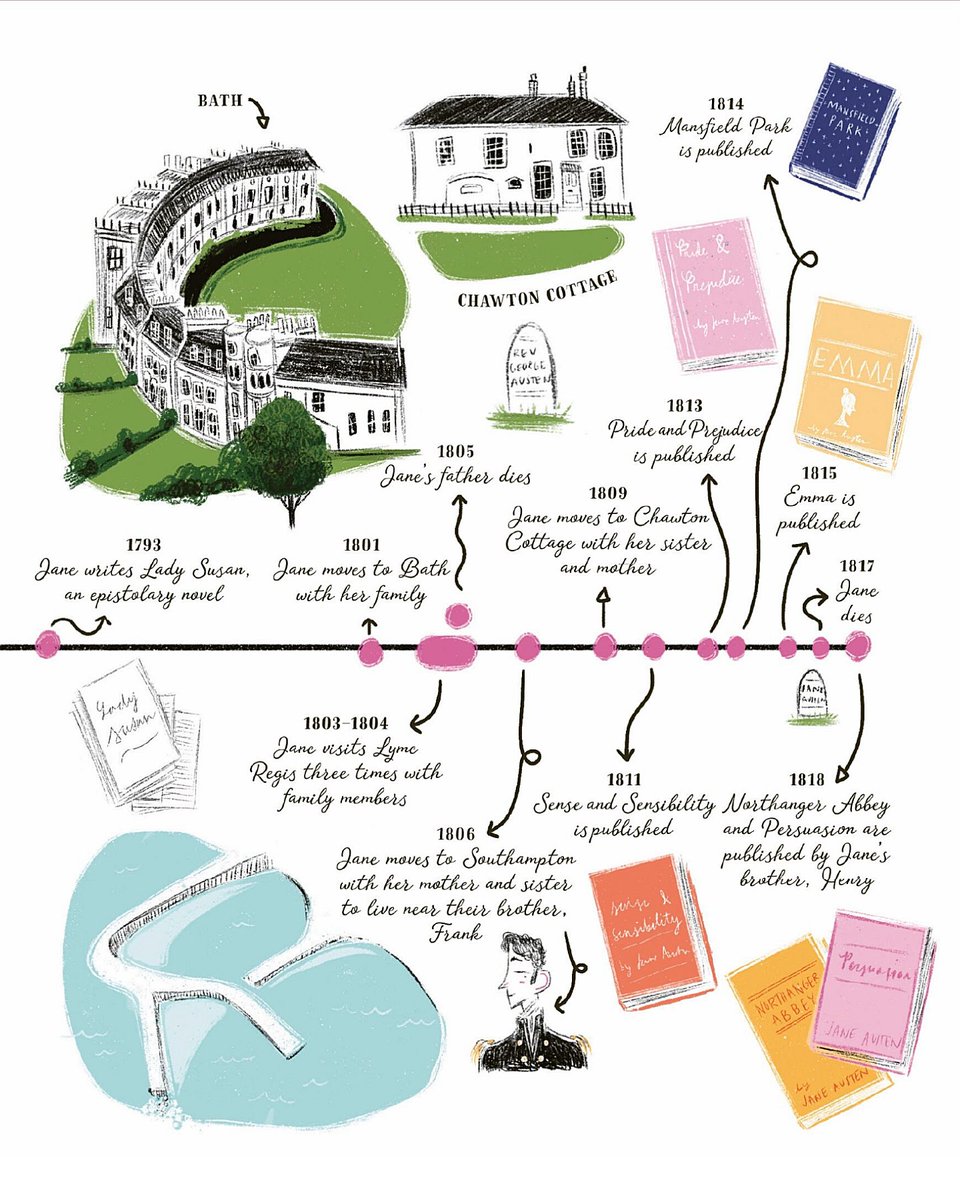 BATH
CHAWTON COTTAGE
1814
Mansfield Park
is published
MANSFIELD
PARK
Pride &
Prejudice
by Jane Austen
EMMA
by Jane Austen
REV
GEORGE
AUSTEN
1805
Jane's father dies
1813
Pride and Prejudice
is published
1809
Jane moves to Chawton
Cottage with her sister
and mother
1815
Emma is
published
1793
Jane writes Lady Susan,
an epistolary novel
1801
Jane moves to Bath
with her family
1817
Jane
dies
Lady
Susan
JANE
AUSTEN
1803–1804
Jane visits Lyme
Regis three times with
family members
1806
Jane moves to Southampton
with her mother and sister
to live near their brother,
Frank
1811
Sense and Sensibility
is published
1818
Northanger Abbey
and Persuasion are
published by Jane's
brother, Henry
Sense &
Sensibility
by Jane Austen
NORTHANGER
ABBEY
by
JANE AUSTEN
Persuasion
JANE AUSTEN